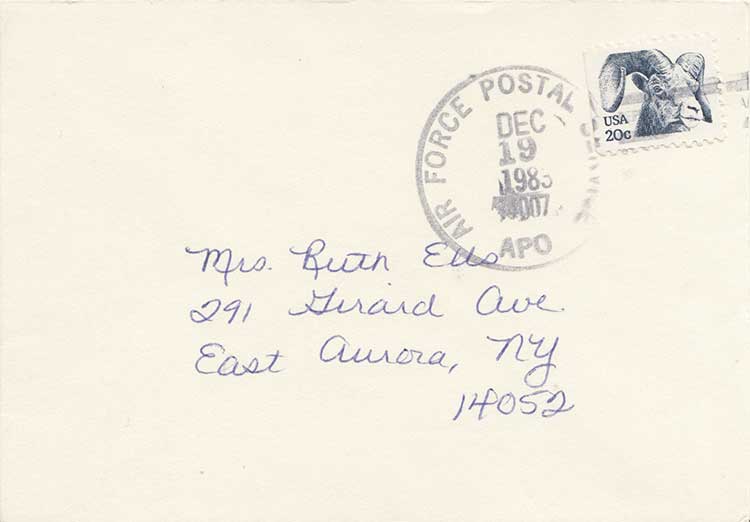 AIR FORCE POSTAL
DEC
19
1983
APO
USA
20c
Mrs. Ruth Ells
291 Girard Ave.
East Aurora, NY
14052